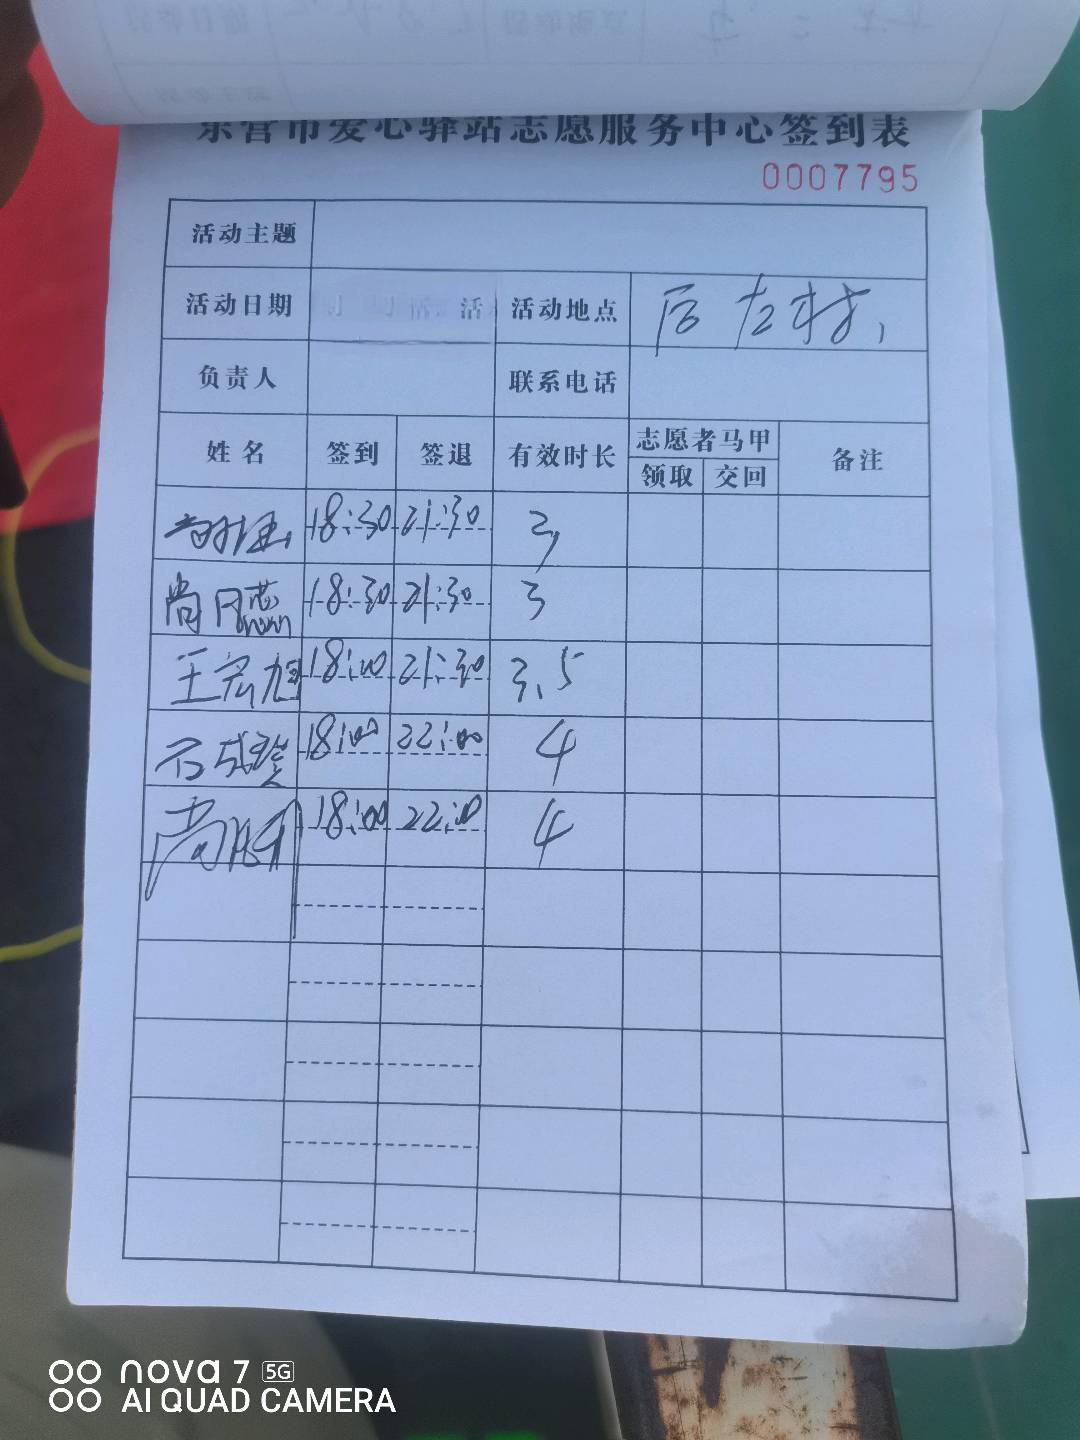 东营市爱心驿站志愿服务中心签到表
0007795
活动主题
活动日期 活动地点 后左村
负责人 联系电话
姓名 签到 签退 有效时长 志愿者马甲 备注
领取 交回
18:30 21:30 3
尚 18:30 21:30 3
王宏旭 18:00 21:30 3.5
石成 18:00 22:00 4
尚 18:00 22:00 4
nova 7 5G
AI QUAD CAMERA